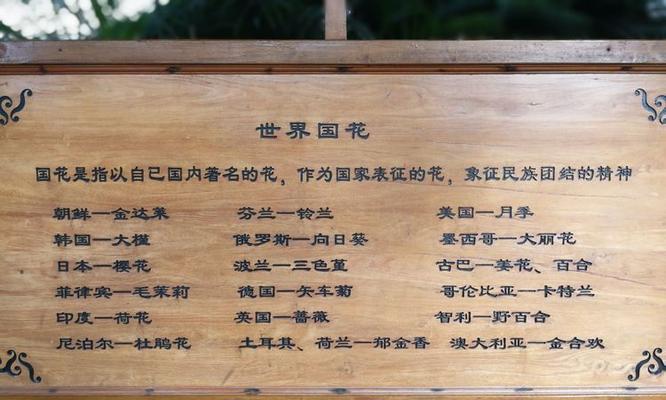 世界国花
国花是指以自己国内著名的花，作为国家表征的花，象征民族团结的精神
朝鲜—金达莱 芬兰—铃兰 美国—月季
韩国—大槿 俄罗斯—向日葵 墨西哥—大丽花
日本—樱花 波兰—三色堇 古巴—姜花、百合
菲律宾—毛茉莉 德国—矢车菊 哥伦比亚—卡特兰
印度—荷花 英国—蔷薇 智利—野百合
尼泊尔—杜鹃花 土耳其、荷兰—郁金香 澳大利亚—金合欢